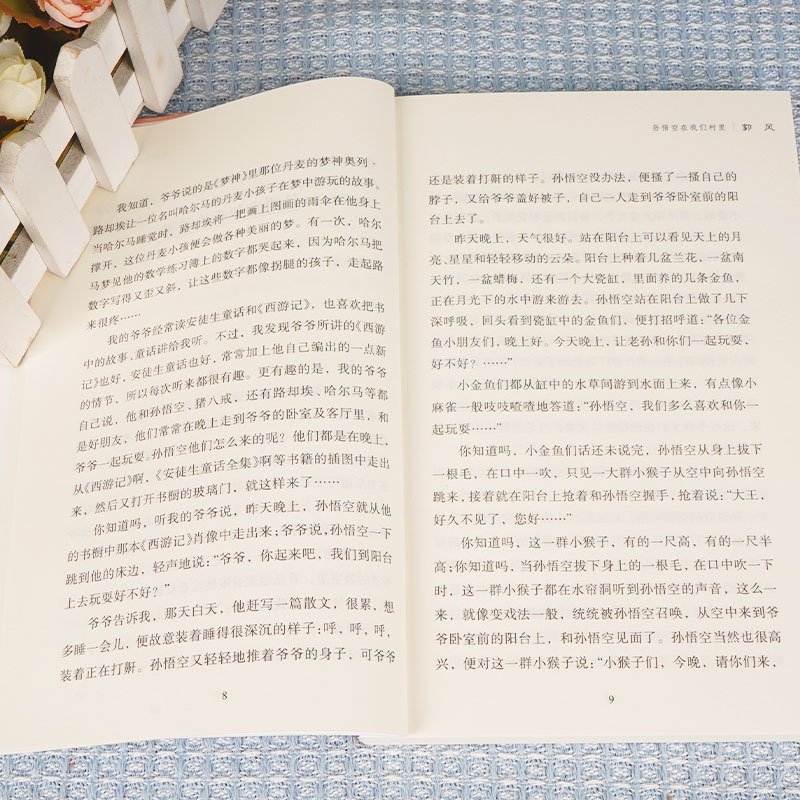 我知道，爷爷说的是《梦神》里那位丹麦的梦神奥列·
路却埃让一位名叫哈尔马的丹麦小孩子在梦中游玩的故事。
当哈尔马睡觉时，路却埃将一把画上图画的雨伞在他身上
撑开，这位丹麦小孩便会做各种美丽的梦。有一次，哈尔
马梦见他的数学练习簿上的数字都哭起来，因为哈尔马把
数字写得又歪又斜，让这些数字都像拐腿的孩子，走起路
来很疼……
我的爷爷经常读安徒生童话和《西游记》，也喜欢把书
中的故事、童话讲给我听。不过，我发现爷爷所讲的《西游
记》也好，安徒生童话也好，常常加上他自己编出的一点新
的情节，所以每次听来都很有趣。更有趣的是，我的爷爷
自己说，他和孙悟空、猪八戒，还有路却埃、哈尔马等都
是好朋友，他们常常在晚上走到爷爷的卧室及客厅里，和
爷爷一起玩耍。孙悟空他们怎么来的呢？他们都是在晚上，
从《西游记》啊，《安徒生童话全集》啊等书籍的插图中走出
来，然后又打开书橱的玻璃门，就这样来了……
你知道吗，听我的爷爷说，昨天晚上，孙悟空就从他
的书橱中那本《西游记》肖像中走出来；爷爷说，孙悟空一下
跳到他的床边，轻声地说：“爷爷，你起来吧，我们到阳台
上去玩耍好不好？”
爷爷告诉我，那天白天，他赶写一篇散文，很累，想
多睡一会儿，便故意装着睡得很深沉的样子：呼，呼，呼，
装着正在打鼾。孙悟空又轻轻地推着爷爷的身子，可爷爷
8
孙悟空在我们村里 | 郭 风
还是装着打鼾的样子。孙悟空没办法，便搔了一搔自己的
脖子，又给爷爷盖好被子，自己一人走到爷爷卧室前的阳
台上去了。
昨天晚上，天气很好。站在阳台上可以看见天上的月
亮、星星和轻轻移动的云朵。阳台上种着几盆兰花，一盆南
天竹，一盆蜡梅，还有一个大瓷缸，里面养的几条金鱼，
正在月光下的水中游来游去。孙悟空站在阳台上做了几下
深呼吸，回头看到瓷缸中的金鱼们，便打招呼道：“各位金
鱼小朋友们，晚上好。今天晚上，让老孙和你们一起玩耍，
好不好？……”
小金鱼们都从缸中的水草间游到水面上来，有点像小
麻雀一般吱吱喳喳地答道：“孙悟空，我们多么喜欢和你一
起玩耍……”
你知道吗，小金鱼们话还未说完，孙悟空从身上拔下
一根毛，在口中一吹，只见一大群小猴子从空中向孙悟空
跳来，接着就在阳台上抢着和孙悟空握手，抢着说：“大王，
好久不见了，您好……”
你知道吗，这一群小猴子，有的一尺高，有的一尺半
高；你知道吗，当孙悟空拔下身上的一根毛，在口中吹一下
时，这一群小猴子都在水帘洞听到孙悟空的声音，这么一
来，就像变戏法一般，统统被孙悟空召唤，从空中来到爷
爷卧室前的阳台上，和孙悟空见面了。孙悟空当然也很高
兴，便对这一群小猴子说：“小猴子们，今晚，请你们来，
9